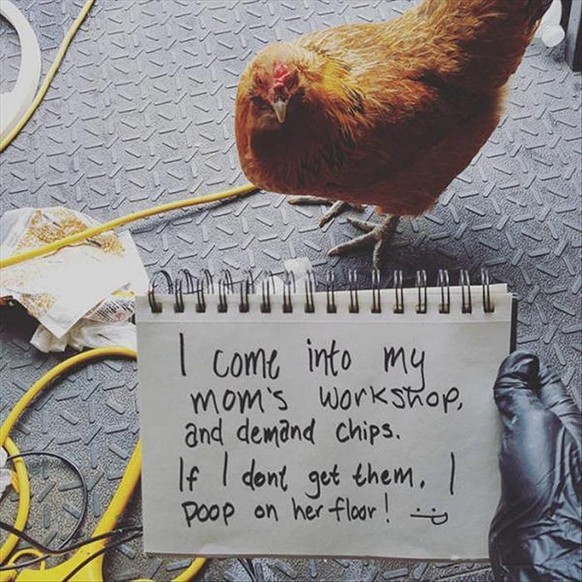 I come into my
mom's workshop,
and demand chips.
If I dont get them, I
poop on her floor! :)